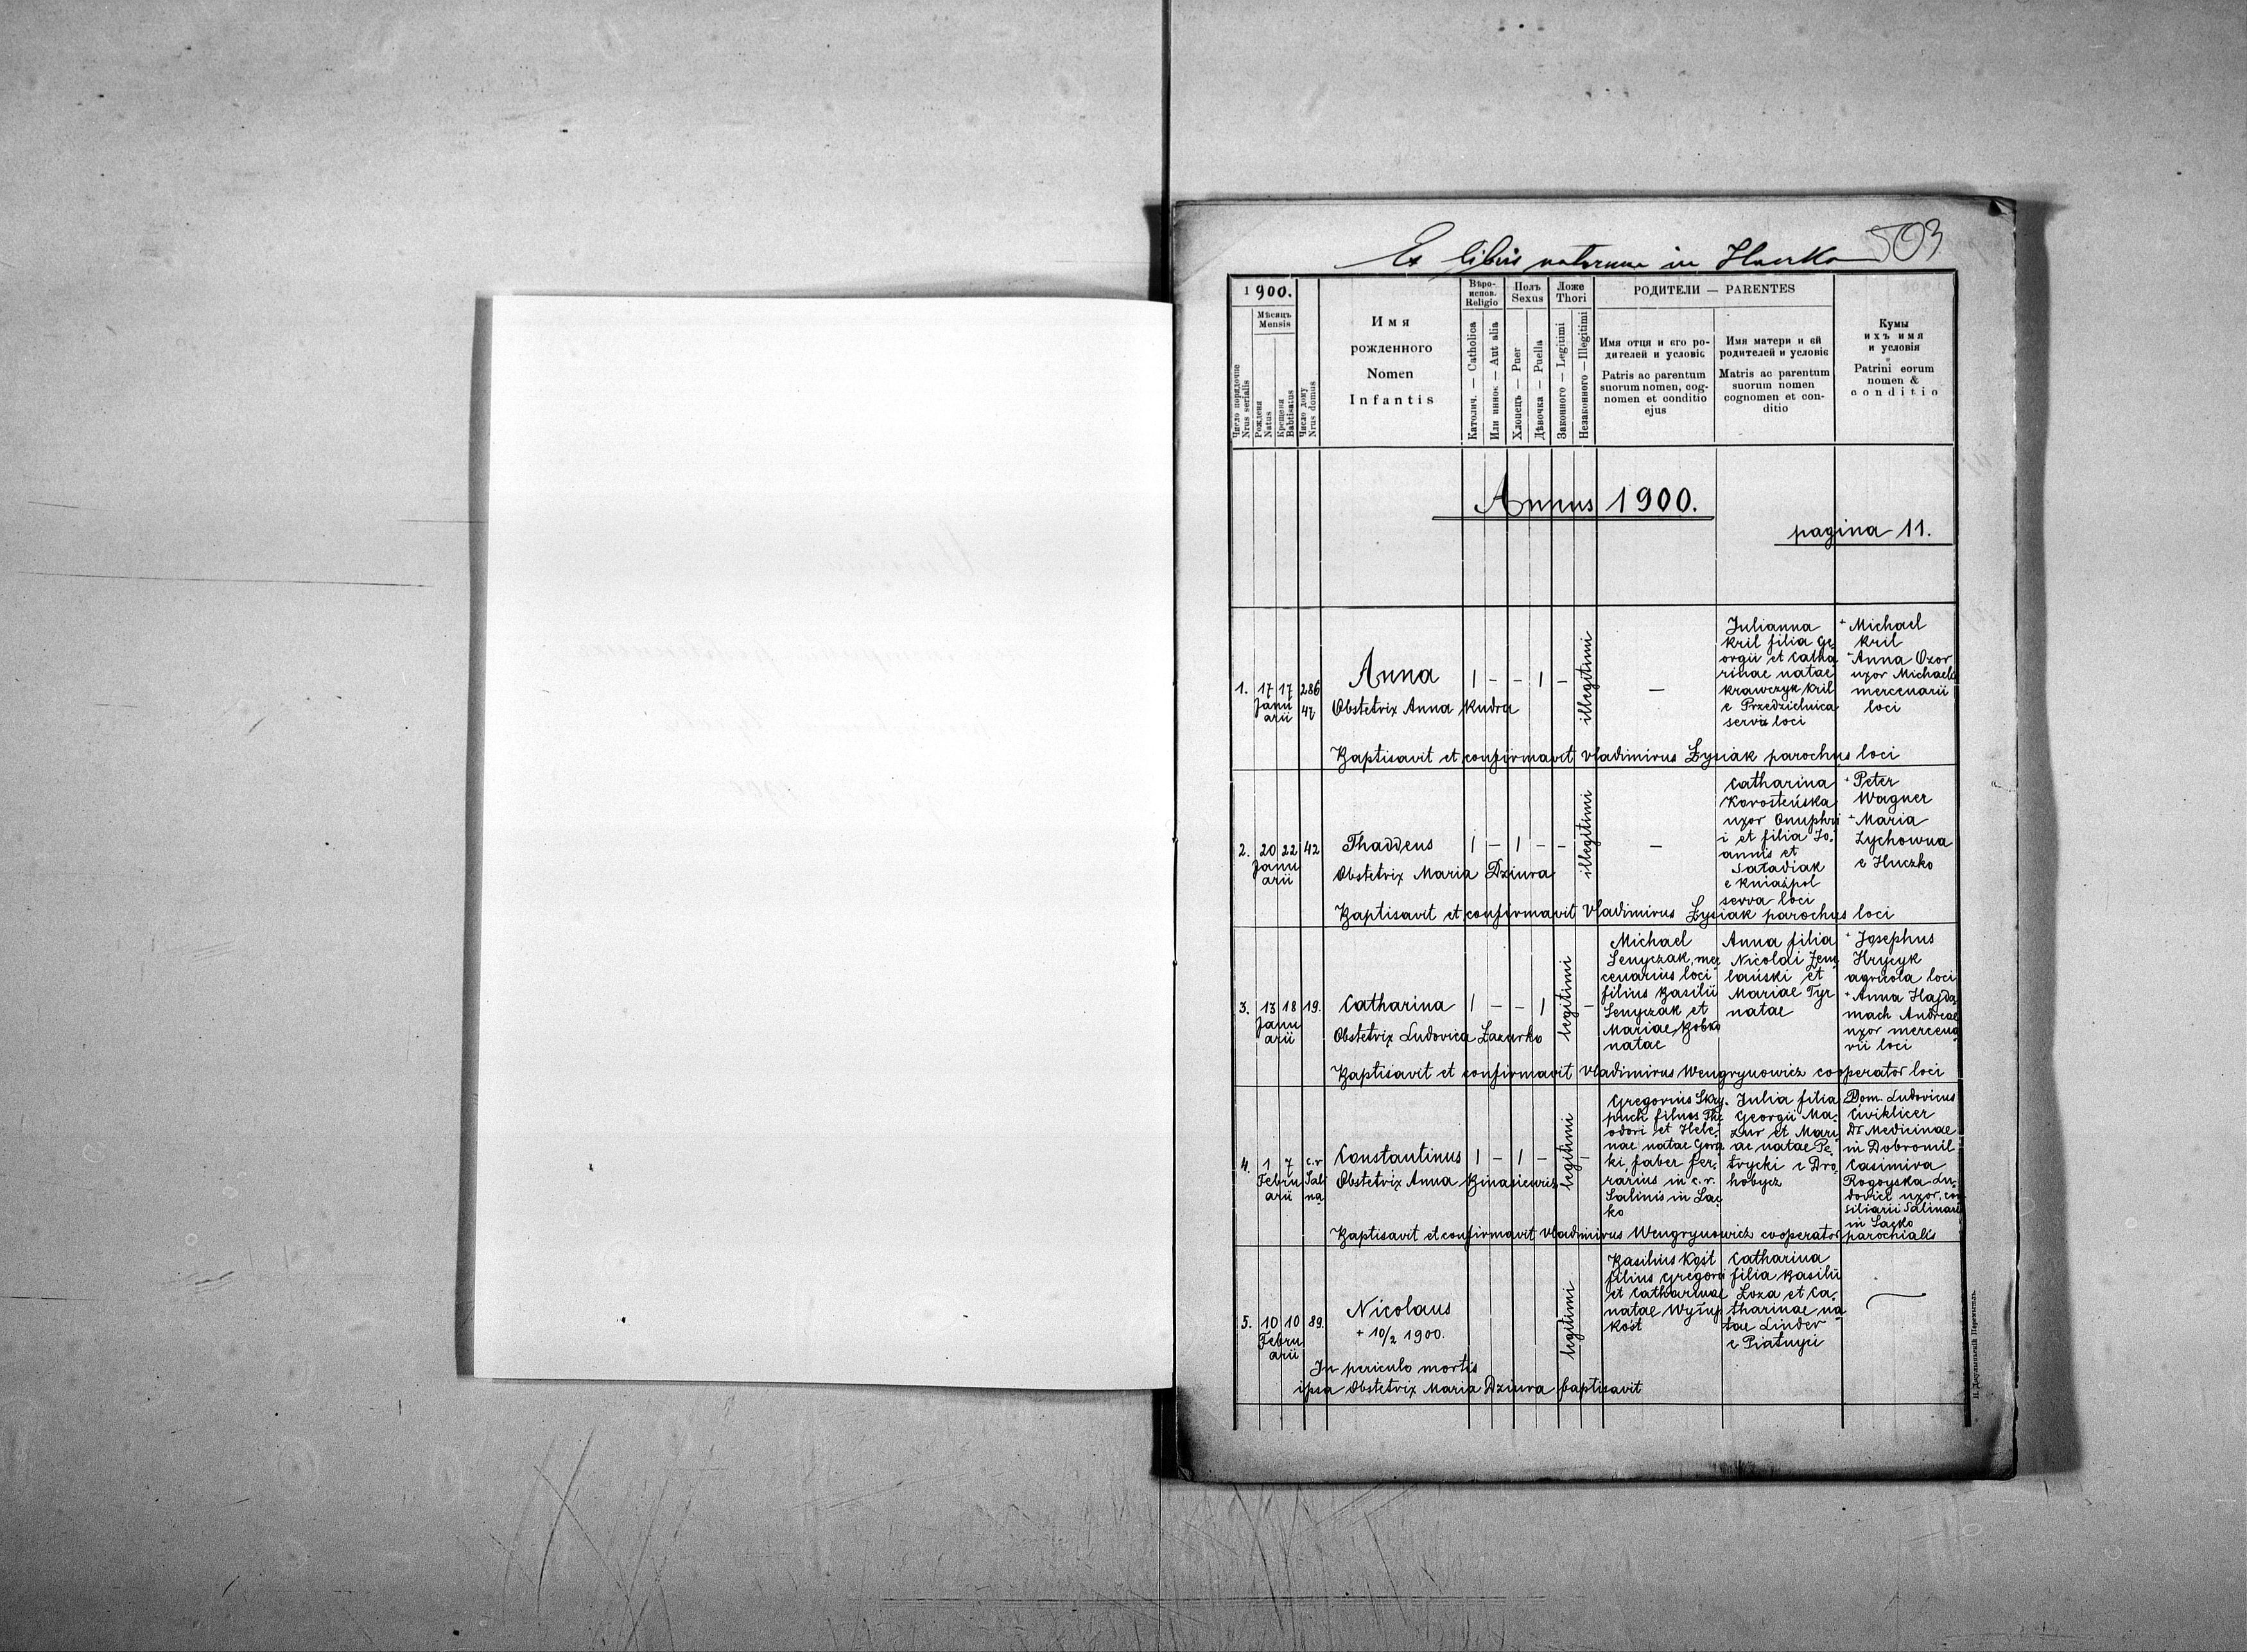 Ex libris natorum in Huczko 503
1900.
Мѣсяцъ
Mensis
Число порядочне
Nrus serialis
Рождена
Natus
Крещена
Babtisatus
Число дому
Nrus domus
Имя
рожденного
Nomen
Infantis
Вѣро-
испов.
Religio
Католич. — Catholica
Или инное — Aut alia
Полъ
Sexus
Хлопецъ — Puer
Дѣвочка — Puella
Ложе
Thori
Законного — Legitimi
Незаконного — Illegitimi
РОДИТЕЛИ — PARENTES
Имя отця и єго ро-
дителей и условіє
Patris ac parentum
suorum nomen, cog-
nomen et conditio
ejus
Имя матери и єй
родителей и условіє
Matris ac parentum
suorum nomen
cognomen et con-
ditio
Кумы
ихъ имя
и условія
Patrini eorum
nomen &
conditio
Annus 1900.
pagina 11.
1. 17 17 286
Janu 47
arii
Anna | - - | - illegitimi —
Obstetrix Anna Kudra
Julianna
Kril filia Ge
orgii et Catha
rinae natae
Krawczyk Kril
e Przedzielnica
serva loci
+ Michael
Kril
+ Anna Ozor
uxor Michaeli
mercenarii
loci
Baptisavit et confirmavit Vladimirus Łysiak parochus loci
2. 20 22 42
Janu
arii
Thaddeus | - | - - illegitimi —
Obstetrix Maria Dziura
Catharina
Korosteńska
uxor Onuphri
i et filia Jo-
annis et
Satadiak
e Kniaźpol
serva loci
+ Peter
Wagner
+ Maria
Zychowna
e Huczko
Baptisavit et confirmavit Vladimirus Łysiak parochus loci
3. 13 18 19.
Janu
arii
Catharina | - - | legitimi -
Obstetrix Ludovica Łazurko
Michael
Senyczak, mer
cenarius loci
filius Basilii
Senyczak et
Mariae Bobko
natae
Anna filia
Nicolai Zem
lański et
Mariae Tyr
natae
+ Josephus
Hrycyk
agricola loci
+ Anna Hajda
mach Andreae
uxor mercena
rii loci
Baptisavit et confirmavit Vladimirus Wengrynowicz cooperator loci
4. 1 7 c.r.
Febru Sali
arii na
Constantinus | - | - legitimi -
Obstetrix Anna
Gregorius Skry-
puch filius The
odori et Hele-
nae natae Gors
ki, faber fer-
rarius in c.r.
Salinis in Lac
ko
Julia filia
Georgii Ma-
zur et Mari
ae natae Pe-
trycki e Dro
hobycz
Dom. Ludovicus
Civiklicer
Dr Medicinae
in Dobromil
Casimira
Rogoyska Lu-
dovici uxor, con
siliarii Salinari
in Lacko
Baptisavit et confirmavit Vladimirus Wengrynowicz cooperator parochialis
5. 10 10 89.
Febru
arii
Nicolaus
+ 10/2 1900.
legitimi
Basilius Kost
filius Gregorii
et Catharinae
natae
Kost
Catharina
filia Basilii
Loza et Ca-
tharinae na
tae Linder
e Piatnyci
In periculo mortis
ipsa Obstetrix Maria Dziura baptisavit